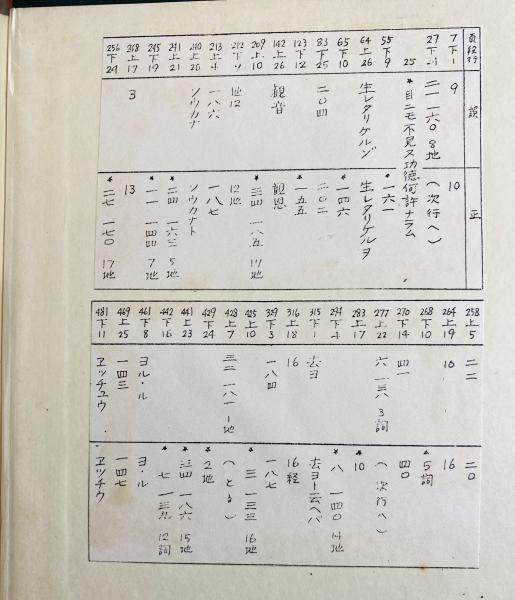 頁段行 誤 正
7下1 9 10
27下 二一 一六〇 8地 (次行へ)
25 *目ニモ不見又功徳何許ナラム
55下9 *一六一
64上26 生レタリケルゾ 生レタリケルヲ
65下10 *一四六
83下25 二〇四 二〇二
123下12 *一五五
142上26 観音 観恩
209上10 *三四 一八五 17地
212下9 地12 12地
213上4 一八六 一八七
240上20 ソウカナ ソウカナト
241上21 *二四 一六三 5地
245下19 *一一 一四四 7地
248上17 3 13
256下24 *二七 一七〇 17地
258上5 二二 二〇
264上19 10 16
268下10 *5詞
270下14 四一 四〇
277上22 六 一三八 3詞 (次行へ)
283上17 *10
294下4 *八 一四〇 14地
315下1 去ヨ 去ヨト云ヘバ
316上18 16 16経
329下3 一八四 一八七
425上10 *三 一三三 16地
428上7 三二 一八一 1地 (とる)
429下24 *2地
441上23 *三四 一八六 15地
442下16 *七 一三九 12詞
461下8 ヨル・ル ヨ・ル
469上25 一四三 一四七
481下11 ヱッチュウ ヱッチウ